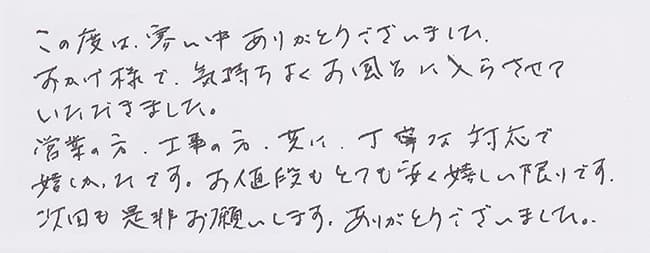 この度は、寒い中ありがとうございました。
おかげ様で、気持ちよくお風呂に入らさせて
いただきました。
営業の方、工事の方、共に、丁寧な対応で
嬉しかったです。お値段もとても安く嬉しい限りです。
次回も是非お願いします。ありがとうございました。